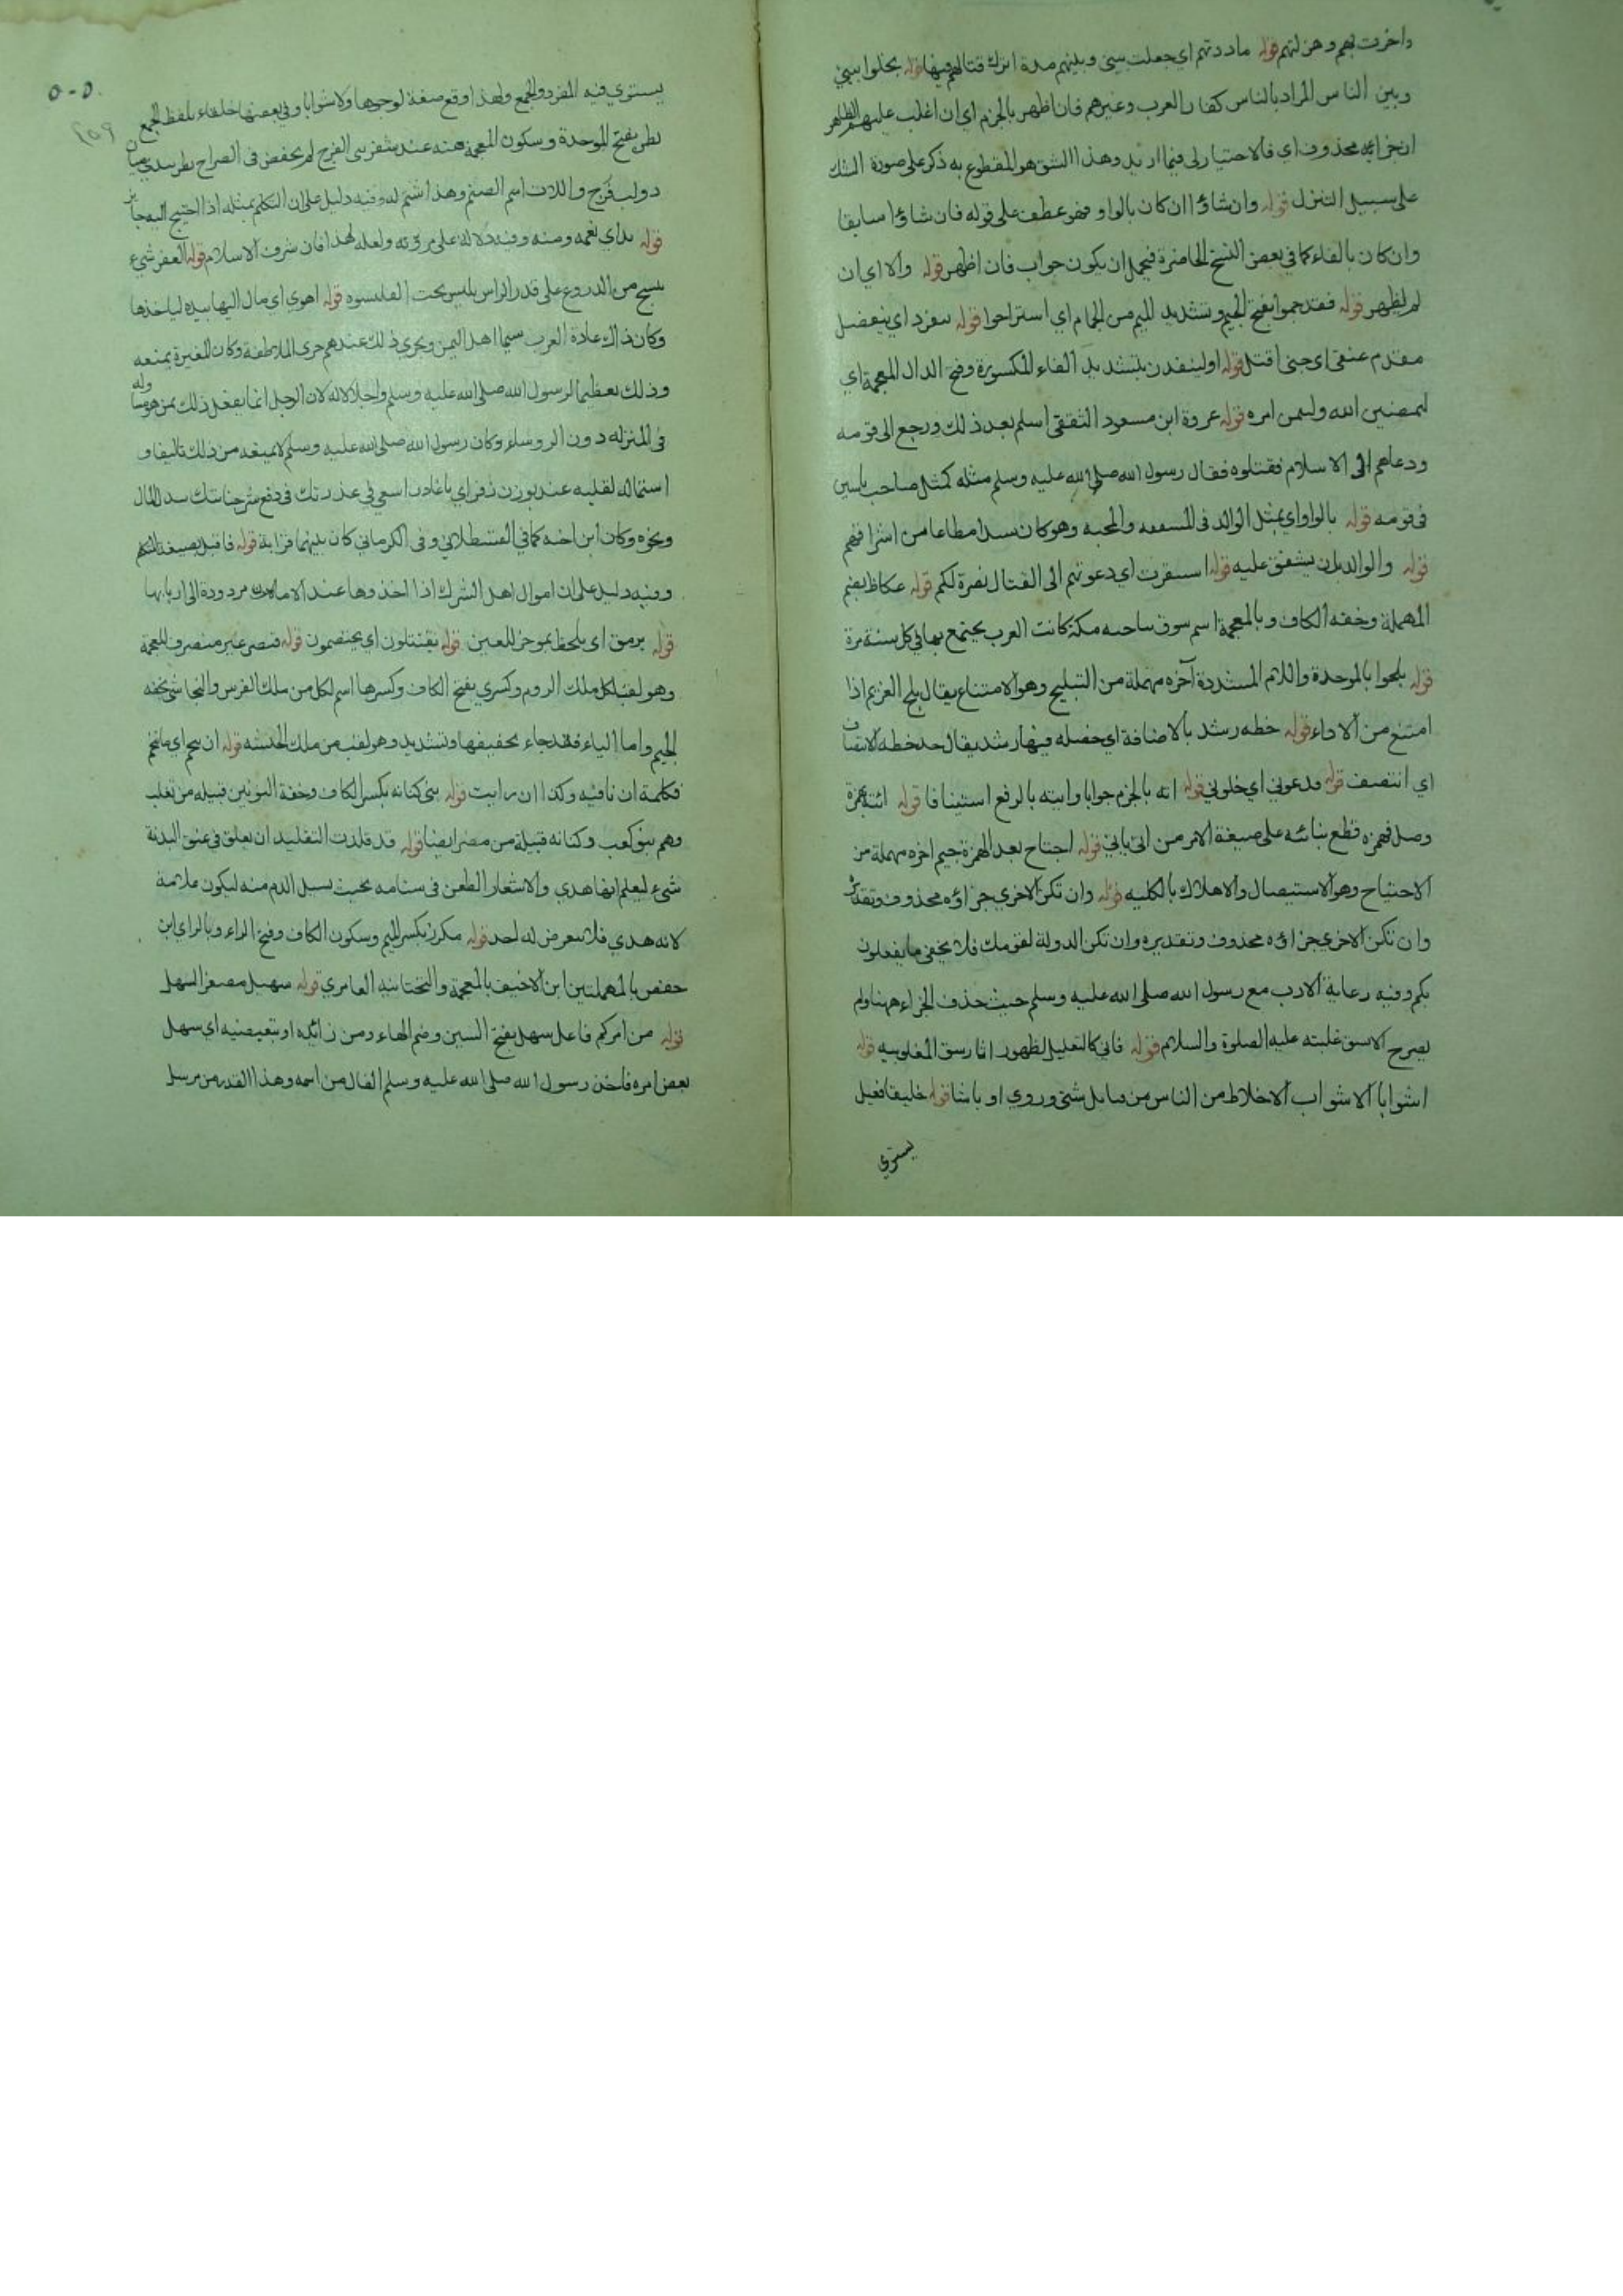 واضرت بهم وهزلتهم قوله ماددتهم اي جعلت بيني وبينهم مدة اترك قتالهم فيها قوله يخلوا بيني
وبين الناس المراد بالناس كفار العرب وغيرهم فان اظهر بالجزم اي ان اغلب عليهم
محذوف اي فالاختيار لي فيما اريد وهذا الشق هو المقطوع به ذكر على صورة الشك
على سبيل التنزل قوله وان شاؤا ان كان بالواو فهو عطف على قوله فان شاؤا سابقا
وان كان بالفاء كما في بعض النسخ الحاضرة فيحمل ان يكون جواب فان اظهر قوله والا اي ان
لم اظهر قوله فقد جموا بفتح الجيم وتشديد الميم من الجمام اي استراحوا قوله تنفرد اي ينفصل
مقدم عنقي اي حتى اقتل قوله اولينفذن بتشديد الفاء المكسورة وفتح الدال المعجمة اي
ليمضين الله وليمن امره قوله عروة ابن مسعود الثقفي اسلم بعد ذلك ورجع الى قومه
ودعاهم الى الاسلام فقتلوه فقال رسول الله صلى الله عليه وسلم مثله كمثل صاحب ياسين
في قومه قوله بالواو اي بمثل الوالد في الشفقه والمحبه وهو كان سيدا مطاعا من اشرافهم
قوله والوالد بان يشفق عليه قوله استنفرت اي دعوتهم الى القتال نصرة لكم قوله عكاظ بضم
المهملة وخفه الكاف وبالمعجمة اسم سوق بناحيه مكة كانت العرب يجتمع بها في كل سنة مرة
قوله بلحوا بالموحدة واللام المشددة آخره مهملة من التبليح وهو الامتناع يقال بلح الغريم اذا
امتنع من الاداء قوله خطه رشد بالاضافة اي خصله فيها رشد يقال خذ خطه الانتصاف
اي انتصف قوله ودعوني اي خلوني قوله اته بالجزم جوابا وآتيه بالرفع استينافا قوله ائته بهمزة
وصل فهمزه قطع بنائه على صيغة الامر من اتى ياتي قوله اجتاح بعد الهمزة جيم اخره مهملة من
الاجتياح وهو الاستيصال والاهلاك بالكليه قوله وان تكن الاخري جزاؤه محذوف وتقديره
وان تكن الاخري جزاؤه محذوف وتقديره وان تكن الدولة لقومك فلا يخفى ما يفعلون
بكم وفيه رعاية الادب مع رسول الله صلى الله عليه وسلم حيث حذف الجزاء ههنا ولم
يصرح الا بشق غلبته عليه الصلوة والسلام قوله فاني كالتعليل لظهور المغلوبيه قوله
اشوابا الاشواب الاخلاط من الناس من قبايل شتى وروي اوباشا قوله خليقا فعيل
يستوي
٥٠٥
٢٥٩
يستوي فيه المفرد والجمع ولهذا وقع صفة لوجوها ولاشوابا وفي بعضها خلقاء بلفظ الجمع
بظر بفتح الموحدة وسكون المعجمة هنه عند شفرتي الفرج لم يخفض في الصراح بظر
فرج واللات اسم الصنم وهذا شتم له وفيه دليل على ان التكلم بمثله اذا احتيج اليه جايز
قوله يد اي نعمه ومنه وفيه دلاله على مروته ولعله لهذا فان شرف الاسلام قوله المغفر شيء
ينسج من الدروع على قدر الراس يلبس تحت القلنسوه قوله اهوي اي مال اليها بيده لياخذها
وكان ذلك عادة العرب سيما اهل اليمن ويجري ذلك عندهم مجري الملاطفة وكان المغيرة يمنعه
وذلك تعظيما لرسول الله صلى الله عليه وسلم واجلالا له لان الرجل انما يفعل ذلك بمن هو مساوله
في المنزله دون الروساء وكان رسول الله صلى الله عليه وسلم لا يمنعه من ذلك تاليفا و
استماله لقلبه غدر بوزن زفر اي يا غادر اسعى في غدرتك في دفع شر خيانتك ببذل المال
ونحوه وكان ابن اخيه كما في القسطلاني وفي الكرماني كان بينهما قرابة قوله فاقبل بصيغة المتكلم
وفيه دليل على ان اموال اهل الشرك اذا اخذوها عند الامان مردودة الى اربابها
قوله يرمق اي يلحظ بموخر العين قوله يقتتلون اي يختصمون قوله قيصر غير منصرف للعجمة
وهو لقب لكل ملك الروم وكسري بفتح الكاف وكسرها اسم لكل من ملك الفرس والنجاشي بخفه
الجيم واما الياء فقد جاء بتخفيفها وتشديد وهو لقب من ملك الحبشه قوله ان تنخم اي ما تنخم
فكلمة ان نافيه وكذا ان رايت قوله بني كنانه بكسر الكاف وخفة النونين قبيله من تغلب
وهم بنو كعب وكنانه قبيلة من مضر ايضا قوله قد قلدت التقليد ان يعلق في عنق البدنة
شيء ليعلم انها هدي والاشعار الطعن في سنامه بحيث يسيل الدم منه ليكون علامة
لانه هدي فلا يتعرض له احد قوله مكرز بكسر الميم وسكون الكاف وفتح الراء وبالزاي ابن
حفص بالمهملتين ابن الاخيف بالمعجمة والتحتانيه العامري قوله سهيل مصغر السهل
قوله من امركم فاعل سهل بفتح السين وضم الهاء ومن زائده او تبعيضيه اي سهل
بعض امره فاخذ رسول الله صلى الله عليه وسلم الفال من اسمه وهذا القدر من مرسل